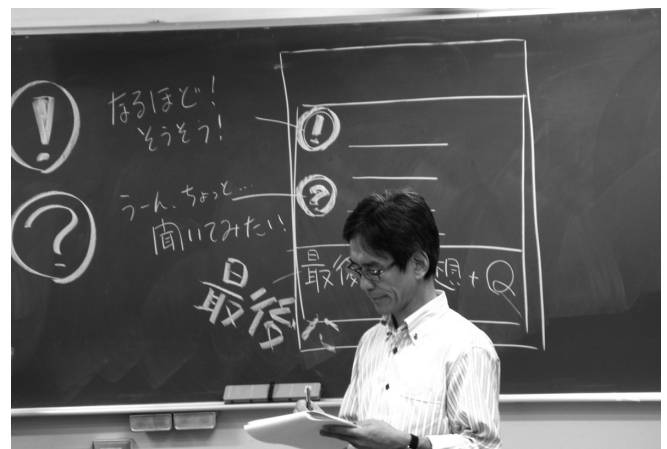 ！
なるほど！
そうそう！
？
うーん、ちょっと…
聞いてみたい！
最後に
！
？
最後 想+Q